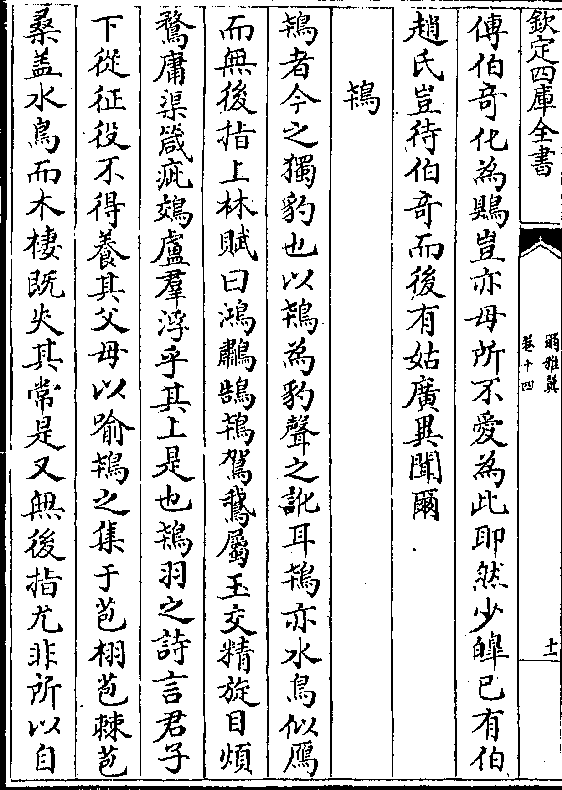 欽定四庫全書
爾雅翼
卷十四
十一
傳伯奇化為鵙豈亦母所不愛為此耶然少皥已有伯
趙氏豈待伯奇而後有姑廣異聞爾
鴇
鴇者今之獨豹也以鴇為豹聲之訛耳鴇亦水鳥似鴈
而無後指上林賦曰鴻鷫鵠鴇駕鵞屬玉交精旋目煩
鶩庸渠箴疵鵁盧羣浮乎其上是也鴇羽之詩言君子
下從征役不得養其父母以喻鴇之集于苞栩苞棘苞
桑盖水鳥而木棲既失其常是又無後指尤非所以自